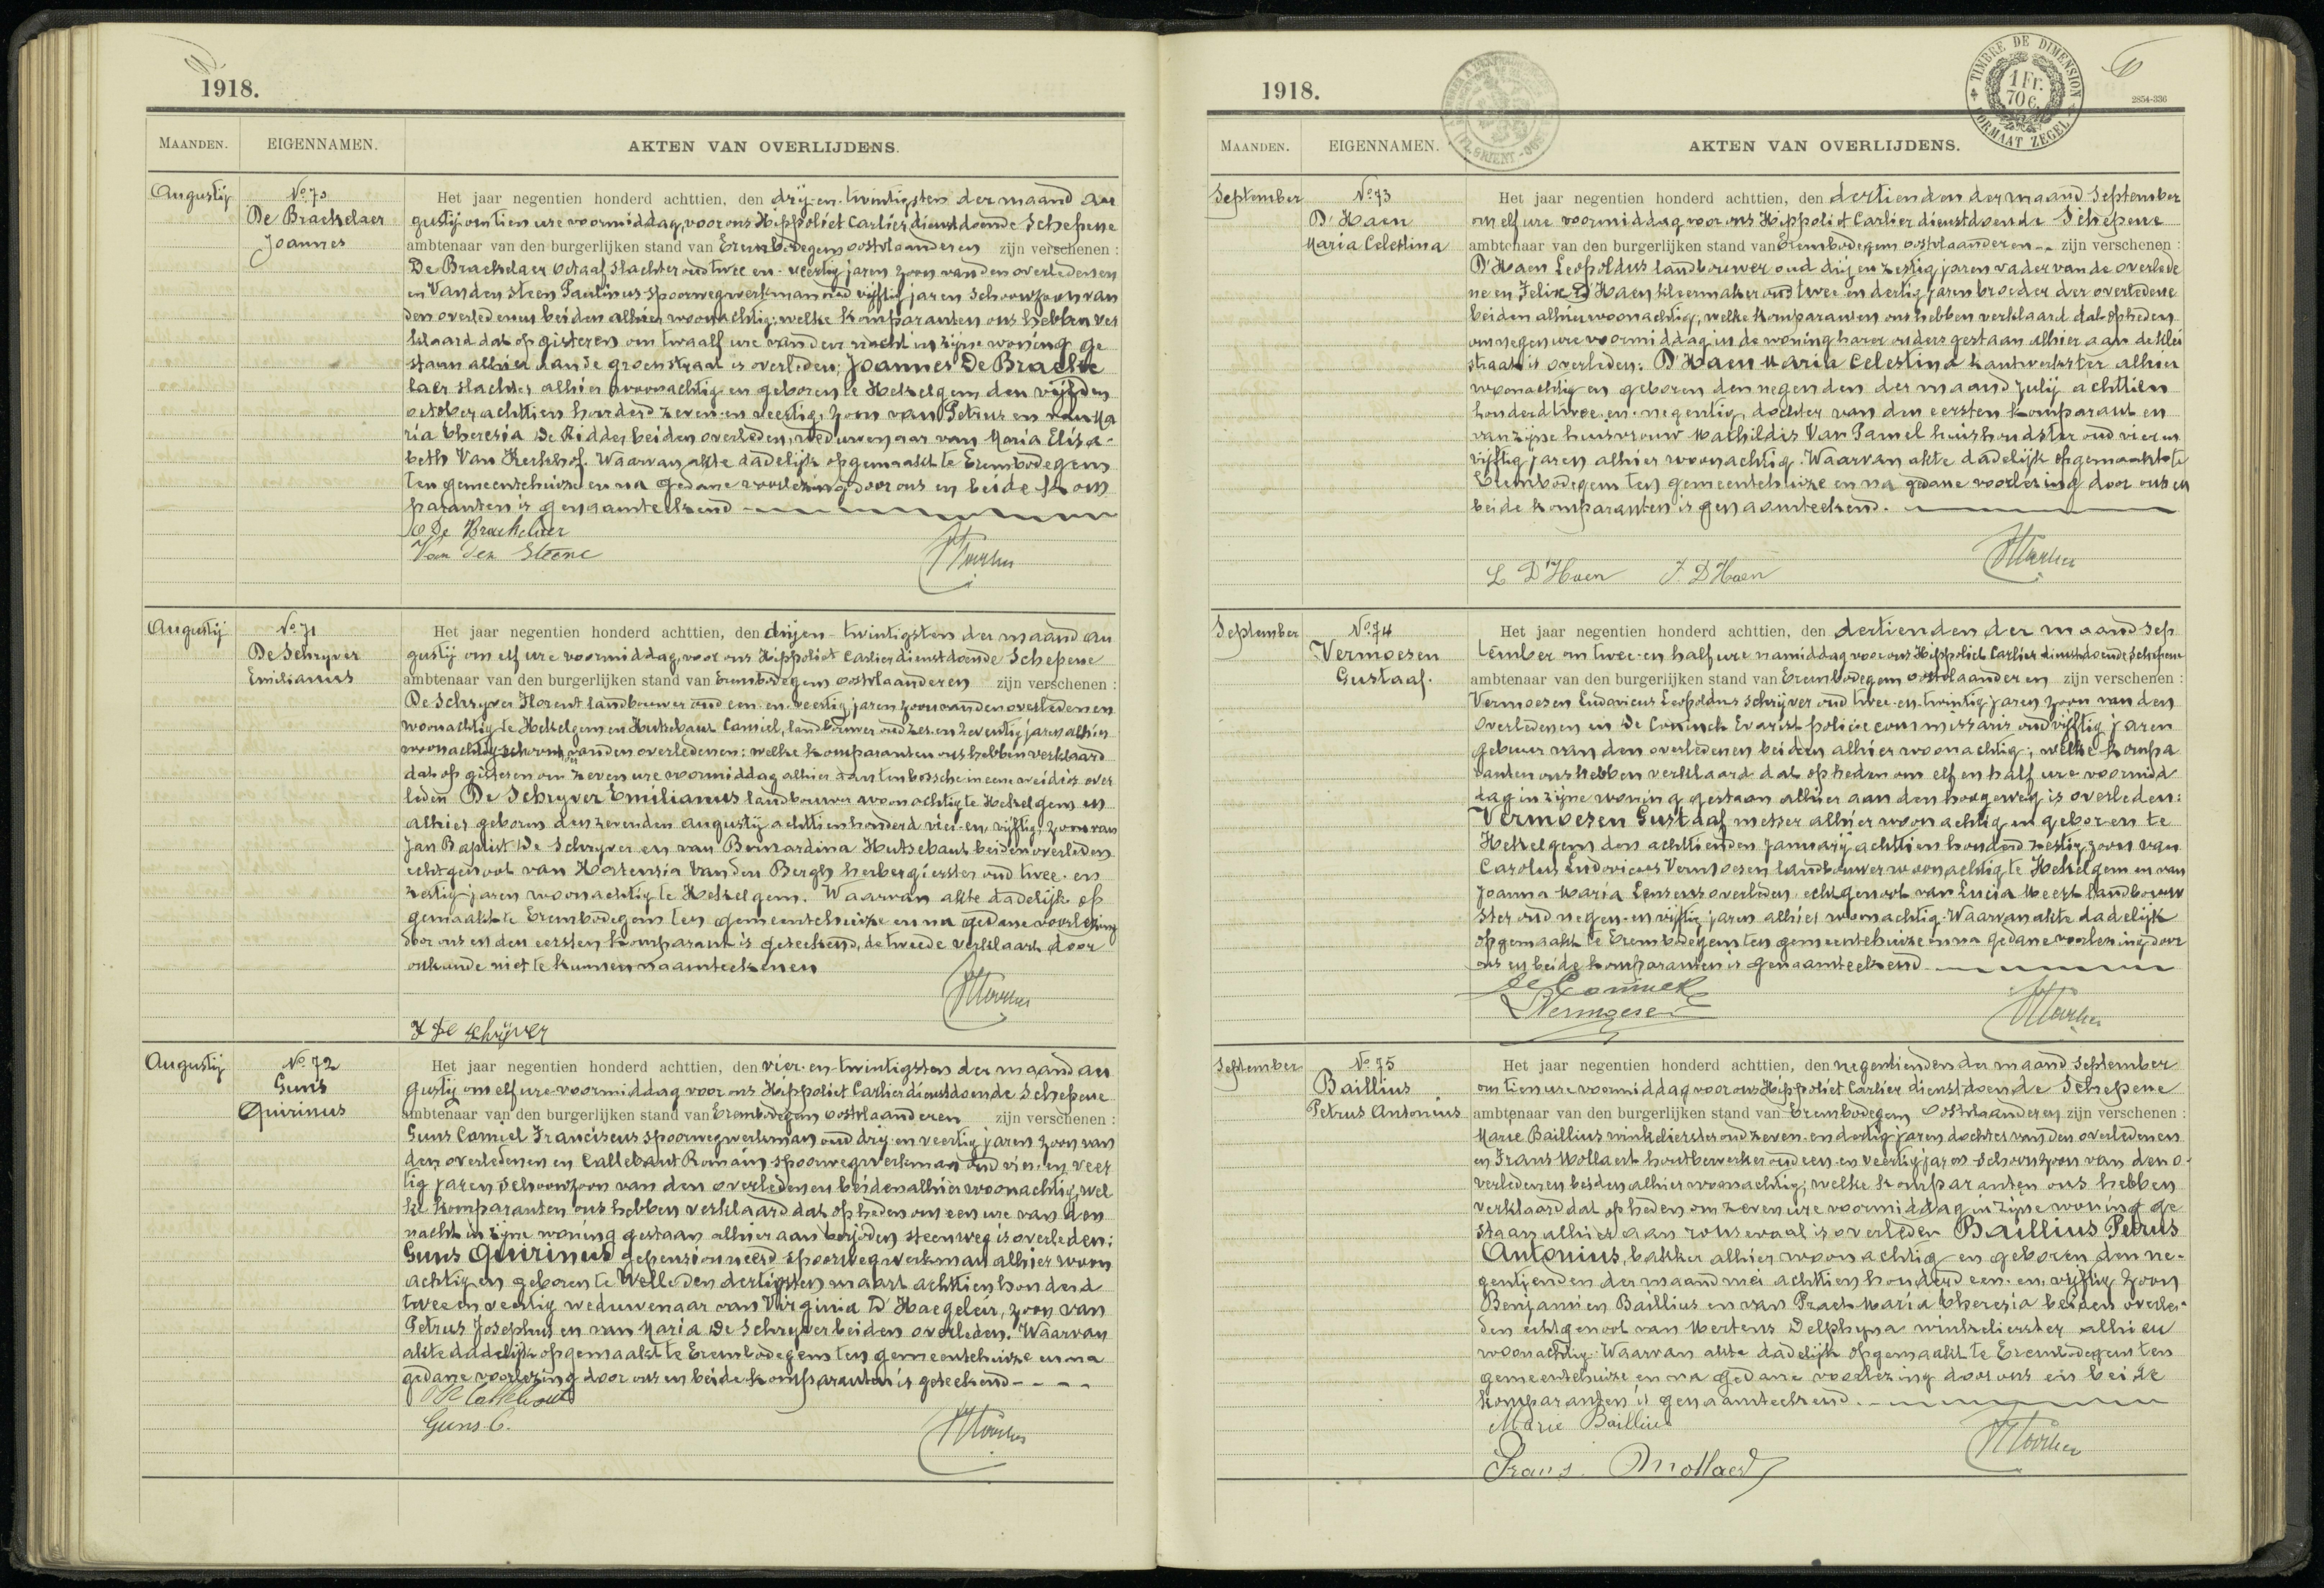 1918.
MAANDEN.
EIGENNAMEN.
AKTEN VAN OVERLIJDENS.
Augustij
No 70
De Brackelaer
Joannes
Het jaar negentien honderd achttien, den drij-en-twintigsten der maand au
gustij om tien ure voormiddag, voor ons Hippoliet Carlier, dienstdoende Schepene
ambtenaar van den burgerlijken stand van Erembodegem oostvlaanderen zijn verschenen :
De Brackelaer Octaaf slachter oud twee en veertig jaren zoon van den overledenen
en Van den Steen Paulinus spoorwegwerkman oud vijftig jaren schoonzoon van
den overledenen beiden alhier woonachtig; welke komparanten ons hebben ver
klaard dat op gisteren om twaalf ure van den nacht in zijne woning ge
staan alhier aan de groenstraat is overleden; Joannes De Bracke
laer slachter alhier woonachtig en geboren te Hekelgem den vijfden
october achttien honderd zeven-en veertig, zoon van Petrus en van Ma
ria Theresia De Ridder beiden overleden, weduwenaar van Maria Elisa-
beth Van Kerkhof. Waarvan akte dadelijk opgemaakt te Erembodegem
ten gemeentehuize en na gedane voorlezing door ons en beide kom
paranten is genaamteekend
O De Brackelaer
Van den Steene
Augustij
No 71
De Schryver
Emilianus
Het jaar negentien honderd achttien, den drijen-twintigsten der maand au
gustij om elf ure voormiddag, voor ons Hippoliet Carlier dienstdoende Schepene
ambtenaar van den burgerlijken stand van Erembodegem oostvlaanderen zijn verschenen :
De Schryver Florent landbouwer oud een-en-veertig jaren zoon van den overledenen
woonachtig te Hekelgem en Hutsebaut Camiel, landbouwer oud zes-en zeventig jaren alhier
woonachtig van den overledenen; welke komparanten ons hebben verklaard
dat op gisteren om zeven ure voormiddag alhier aan tenbossche in eene weide is over
leden De Schryver Emilianus landbouwer woonachtig te Hekelgem en
alhier geboren den zevenden augustij achttienhonderd vier-en-vijftig, zoon van
Jan Baptist De Schryver en van Bernardina Hutsebaut beiden overleden
echtgenoot van Hortensia Van den Bergh herbergierster oud twee-en
zestig jaren woonachtig te Hekelgem. Waarvan akte dadelijk op
gemaakt te Erembodegem ten gemeentehuize en na gedane voorlezing
door ons en den eersten komparant is geteekend, de tweede verklaart door
onkunde niet te kunnen naamteekenen
F De Schrijver
Augustij
No 72
Guns
Quirinus
Het jaar negentien honderd achttien, den vier-en-twintigsten der maand au
gustij om elf ure voormiddag voor ons Hippoliet Carlier dienstdoende Schepene
ambtenaar van den burgerlijken stand van Erembodegem oostvlaanderen zijn verschenen :
Guns Camiel Franciscus spoorwegwerkman oud drij-en veertig jaren zoon van
den overledenen en Callebaut Romain spoorwegwerkman oud vier-en veer
tig jaren schoonzoon van den overledenen beiden alhier woonachtig, wel
ke komparanten ons hebben verklaard dat op heden om een ure van den
nacht in zijne woning gestaan alhier aan steenweg is overleden;
Guns Quirinus gepensionneerd spoorwegwerkman alhier woon
achtig en geboren te Welle den dertigsten maart achttien honderd
twee en veertig weduwenaar van Virginia D'Haegeleir, zoon van
Petrus Josephus en van Maria De Schryver beiden overleden. Waarvan
akte dadelijk opgemaakt te Erembodegem ten gemeentehuize en na
gedane voorlezing door ons en beide komparanten is geteekend
Guns C.
1918.
TIMBRE DE DIMENSION
1 Fr.
70 c.
FORMAAT ZEGEL
2854-336
MAANDEN.
EIGENNAMEN.
AKTEN VAN OVERLIJDENS.
September
No 73
D'Haen
Maria Celestina
Het jaar negentien honderd achttien, den dertienden der maand September
om elf ure voormiddag voor ons Hippoliet Carlier dienstdoende Schepene
ambtenaar van den burgerlijken stand van Erembodegem oostvlaanderen zijn verschenen :
D'Haen Leopoldus landbouwer oud drij en zestig jaren vader van de overlede
ne en Felix D'Haen kleermaker oud twee-en dertig jaren broeder der overledene
beiden alhier woonachtig, welke komparanten ons hebben verklaard dat op heden
om negen ure voormiddag in de woning harer ouders gestaan alhier aan de klei
straat is overleden: D'Haen Maria Celestina kantwerkster alhier
woonachtig en geboren den negenden der maand july achttien
honderd twee-en-negentig, dochter van den eersten komparant en
van zijne huisvrouw Mathildis Van Pamel huishoudster oud vier en
vijftig jaren alhier woonachtig. Waarvan akte dadelijk opgemaakt te
Erembodegem ten gemeentehuize en na gedane voorlezing door ons en
beide komparanten is genaamteekend.
L D'Haen F. D'Haen
September
No 74
Vermoesen
Gustaaf.
Het jaar negentien honderd achttien, den dertienden der maand Sep
tember om twee-en half ure namiddag voor ons Hippoliet Carlier dienstdoende Schepene
ambtenaar van den burgerlijken stand van Erembodegem oostvlaanderen zijn verschenen :
Vermoesen Ludovicus Leopoldus schrijver oud twee-en-twintig jaren zoon van den
overledenen en De Coninck Evarist policiecommissaris oud vijftig jaren
gebuur van den overledenen beiden alhier woonachtig; welke kompa
ranten ons hebben verklaard dat op heden om elf en half ure voormid
dag in zijne woning gestaan alhier aan den hoogeweg is overleden:
Vermoesen Gustaaf metser alhier woonachtig en geboren te
Hekelgem den achttienden january achttien honderd zestig, zoon van
Carolus Ludovicus Vermoesen landbouwer woonachtig te Hekelgem en van
Joanna Maria Lemens overleden, echtgenoot van Lucia Meert landbouw
ster oud negen-en vijftig jaren alhier woonachtig. Waarvan akte dadelijk
opgemaakt te Erembodegem ten gemeentehuize en na gedane voorlezing door
ons en beide komparanten is genaamteekend
De Coninck
Vermoesen
September
No 75
Baillius
Petrus Antonius
Het jaar negentien honderd achttien, den negentienden der maand September
om tien ure voormiddag voor ons Hippoliet Carlier dienstdoende Schepene
ambtenaar van den burgerlijken stand van Erembodegem Oostvlaanderen zijn verschenen :
Marie Baillius winkelierster oud zeven-en dertig jaren dochter van den overledenen
en Frans Mollaert houtbewerker oud een-en veertig jaren schoonzoon van den o-
verledenen beiden alhier woonachtig; welke komparanten ons hebben
verklaard dat op heden om zeven ure voormiddag in zijne woning ge
staan alhier aan ronsevaal is overleden Baillius Petrus
Antonius, bakker alhier woonachtig en geboren den ne-
gentienden der maand mei achttien honderd een-en-vijftig zoon
Benjamien Baillius en van Praet Maria Theresia beiden overle-
den echtgenoot van Mertens Delphyna winkelierster alhier
woonachtig. Waarvan akte dadelijk opgemaakt te Erembodegem ten
gemeentehuize en na gedane voorlezing door ons en beide
komparanten is genaamteekend.
Marie Baillius
Frans Mollaert